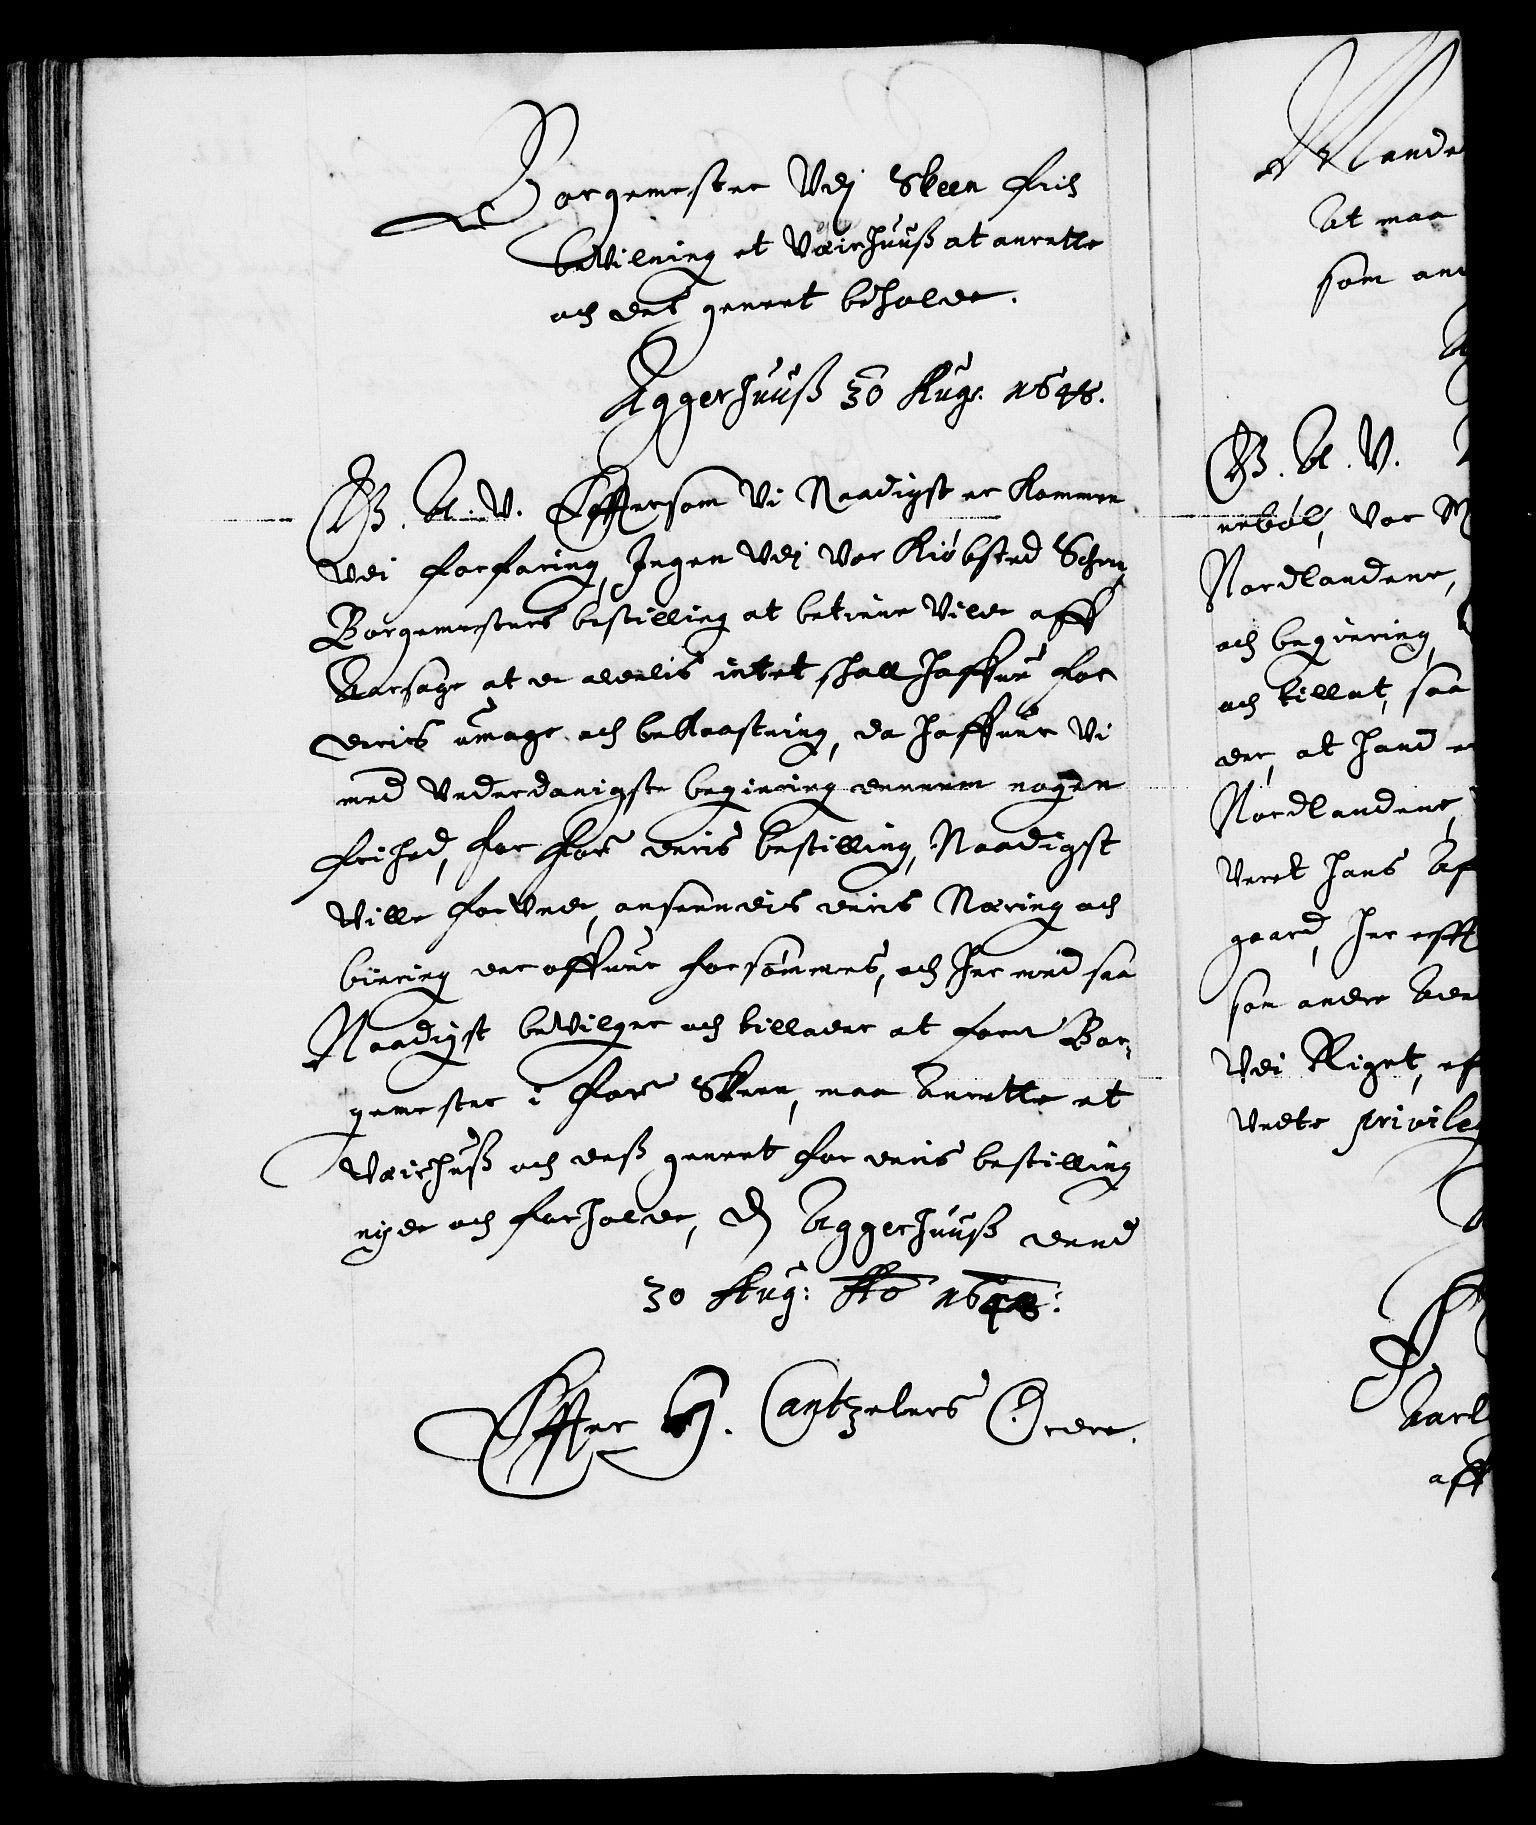 Borgemester Vdj Skeen fich
beVilning et Værtzhuuß at anrette
och dets genent beholde.
Aggerhuuß 30 Aug. 1648.
G. A. V. Effter som Vi Naadigst er kommen
Vdi forfaring, Ingen Vdj Vor Kiöbsted Scheen
Borgemesters bestilling at betiene Vilde aff
Aarsage at de aldelis intet skall haffue for
deris Umage och bekaastning, da haffuer Vi
med Vnderdanigste begiering dennem nogen
frihed, for for.ne deris bestilling, Naadigst
Ville forVnde, anseendis deris Næring och
biering der offuer forsömmes, och her med saa
Naadigst beVilger och tillader at forn Bor-
gemester i for.ne Skeen, maa Anrette et
Værtzhuß och deß genent for deris bestilling
nyde och forholde, D Aggerhuuß dend
30 Aug: Ao 1648:
Effter H. Cantzelers Ordre.
Mande
At maa
som an
G. A. V.
neböl, Vor M
Nordlandene,
och begiering,
och tillat, saa
der, at hand
Nordlandene,
Veret hans Af
gaard, her efft
som andre Ade
Vdi Riget, ef
Vndte privileg
Aarl
aff